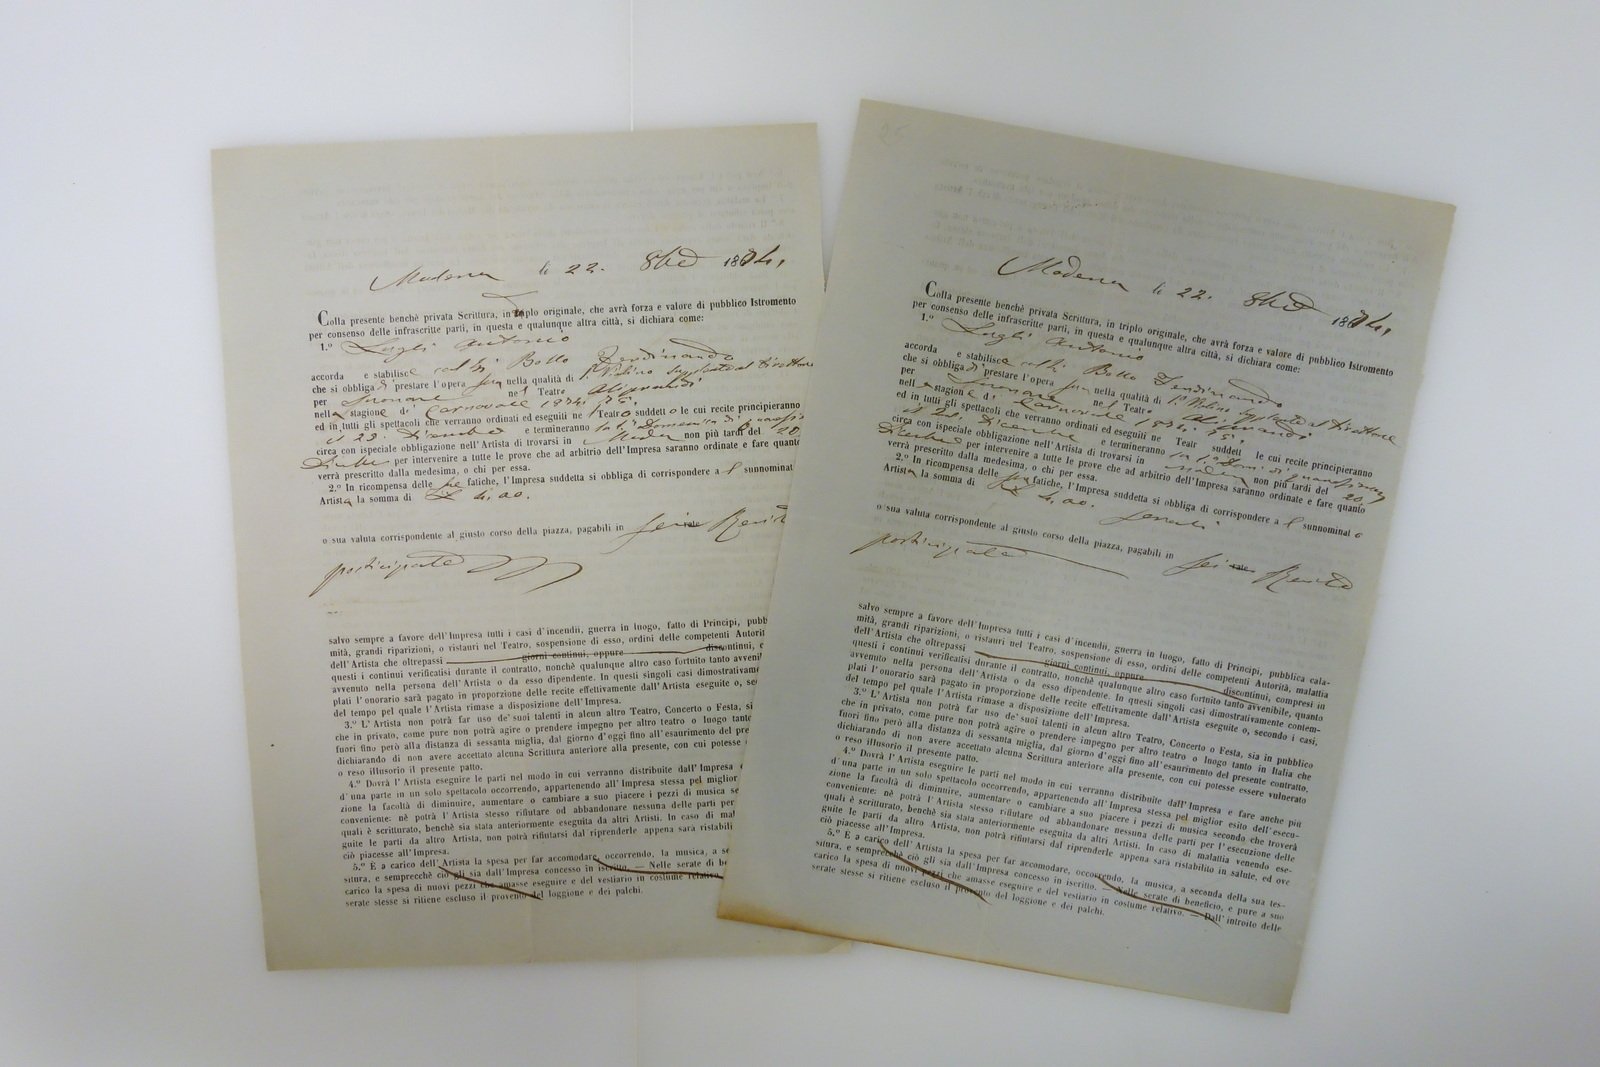 Modena li 22. 8bre 1874,
Colla presente benchè privata Scrittura, in triplo originale, che avrà forza e valore di pubblico Istromento
per consenso delle infrascritte parti, in questa e qualunque altra città, si dichiara come:
1.º Lugli Antonio
accorda e stabilisce Bollo Ferdinando
che si obbliga di prestare l'opera sua nella qualità di supplente al Direttore
per nel Teatro Aliprandi
nella stagione di Carnovale 1874. 75.
ed in tutti gli spettacoli che verranno ordinati ed eseguiti ne Teatro suddetto le cui recite principieranno
il 23. Dicembre e termineranno la 1.a Domenica di quaresima
circa con ispeciale obbligazione nell'Artista di trovarsi in Modena non più tardi del 20
per intervenire a tutte le prove che ad arbitrio dell'Impresa saranno ordinate e fare quanto
verrà prescritto dalla medesima, o chi per essa.
2.º In ricompensa delle sue fatiche, l'Impresa suddetta si obbliga di corrispondere a l sunnominat
Artista la somma di
o sua valuta corrispondente al giusto corso della piazza, pagabili in sei rate
posticipate
salvo sempre a favore dell'Impresa tutti i casi d'incendii, guerra in luogo, fatto di Principi, pubb
mità, grandi riparizioni, o ristauri nel Teatro, sospensione di esso, ordini delle competenti Autorit
dell'Artista che oltrepassi giorni continui, oppure discontinui, c
questi i continui verificatisi durante il contratto, nonchè qualunque altro caso fortuito tanto avveni
avvenuto nella persona dell'Artista o da esso dipendente. In questi singoli casi dimostrativam
plati l'onorario sarà pagato in proporzione delle recite effettivamente dall'Artista eseguite o, se
del tempo pel quale l'Artista rimase a disposizione dell'Impresa.
3.º L'Artista non potrà far uso de' suoi talenti in alcun altro Teatro, Concerto o Festa, si
che in privato, come pure non potrà agire o prendere impegno per altro teatro o luogo tanto
fuori fino però alla distanza di sessanta miglia, dal giorno d'oggi fino all'esaurimento del pre
dichiarando di non avere accettato alcuna Scrittura anteriore alla presente, con cui potesse
o reso illusorio il presente patto.
4.º Dovrà l'Artista eseguire le parti nel modo in cui verranno distribuite dall'Impresa
d'una parte in un solo spettacolo occorrendo, appartenendo all'Impresa stessa pel miglior
zione la facoltà di diminuire, aumentare o cambiare a suo piacere i pezzi di musica se
conveniente: nè potrà l'Artista stesso rifiutare od abbandonare nessuna delle parti per
quali è scritturato, benchè sia stata anteriormente eseguita da altri Artisti. In caso di mal
guite le parti da altro Artista, non potrà rifiutarsi dal riprenderle appena sarà ristabili
ciò piacesse all'Impresa.
5.º È a carico dell'Artista la spesa per far accomodare, occorrendo, la musica, a se
situra, e semprecchè ciò gli sia dall'Impresa concesso in iscritto. — Nelle serate di be
carico la spesa di nuovi pezzi che amasse eseguire e del vestiario in costume relativo
serate stesse si ritiene escluso il provento del loggione e dei palchi.
Modena li 22. 8bre 1874,
Colla presente benchè privata Scrittura, in triplo originale, che avrà forza e valore di pubblico Istromento
per consenso delle infrascritte parti, in questa e qualunque altra città, si dichiara come:
1.º Lugli Antonio
accorda e stabilisce Bollo Ferdinando
che si obbliga di prestare l'opera sua nella qualità di supplente al Direttore
per nel Teatro Aliprandi
nella stagione di Carnovale 1874. 75.
ed in tutti gli spettacoli che verranno ordinati ed eseguiti ne Teatr suddett le cui recite principieranno
il Dicembre e termineranno
circa con ispeciale obbligazione nell'Artista di trovarsi in Modena non più tardi del 20
Dicembre per intervenire a tutte le prove che ad arbitrio dell'Impresa saranno ordinate e fare quanto
verrà prescritto dalla medesima, o chi per essa.
2.º In ricompensa delle sue fatiche, l'Impresa suddetta si obbliga di corrispondere a l sunnominat o
Artista la somma di
o sua valuta corrispondente al giusto corso della piazza, pagabili in sei rate
posticipate
salvo sempre a favore dell'Impresa tutti i casi d'incendii, guerra in luogo, fatto di Principi, pubblica cala-
mità, grandi riparizioni, o ristauri nel Teatro, sospensione di esso, ordini delle competenti Autorità, malattia
dell'Artista che oltrepassi giorni continui, oppure discontinui, compresi in
questi i continui verificatisi durante il contratto, nonchè qualunque altro caso fortuito tanto avvenibile, quanto
avvenuto nella persona dell'Artista o da esso dipendente. In questi singoli casi dimostrativamente contem-
plati l'onorario sarà pagato in proporzione delle recite effettivamente dall'Artista eseguite o, secondo i casi,
del tempo pel quale l'Artista rimase a disposizione dell'Impresa.
3.º L'Artista non potrà far uso de' suoi talenti in alcun altro Teatro, Concerto o Festa, sia in pubblico
che in privato, come pure non potrà agire o prendere impegno per altro teatro o luogo tanto in Italia che
fuori fino però alla distanza di sessanta miglia, dal giorno d'oggi fino all'esaurimento del presente contratto,
dichiarando di non avere accettato alcuna Scrittura anteriore alla presente, con cui potesse essere vulnerato
o reso illusorio il presente patto.
4.º Dovrà l'Artista eseguire le parti nel modo in cui verranno distribuite dall'Impresa e fare anche più
d'una parte in un solo spettacolo occorrendo, appartenendo all'Impresa stessa pel miglior esito dell'esecu-
zione la facoltà di diminuire, aumentare o cambiare a suo piacere i pezzi di musica secondo che troverà
conveniente: nè potrà l'Artista stesso rifiutare od abbandonare nessuna delle parti per l'esecuzione delle
quali è scritturato, benchè sia stata anteriormente eseguita da altri Artisti. In caso di malattia venendo ese-
guite le parti da altro Artista, non potrà rifiutarsi dal riprenderle appena sarà ristabilito in salute, ed ove
ciò piacesse all'Impresa.
5.º È a carico dell'Artista la spesa per far accomodare, occorrendo, la musica, a seconda della sua tes-
situra, e semprecchè ciò gli sia dall'Impresa concesso in iscritto. — Nelle serate di beneficio, e pure a suo
carico la spesa di nuovi pezzi che amasse eseguire e del vestiario in costume relativo. — Dall'introito delle
serate stesse si ritiene escluso il provento del loggione e dei palchi.